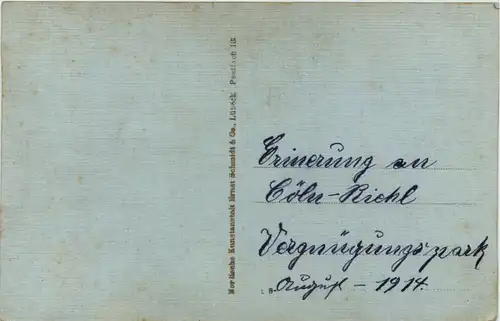 Nordische Kunstanstalt Ernst Schmidt & Co., Lübeck. Postfach 113
Erinerung an
Cöln-Riehl
Vergnügungspark
August - 1914.